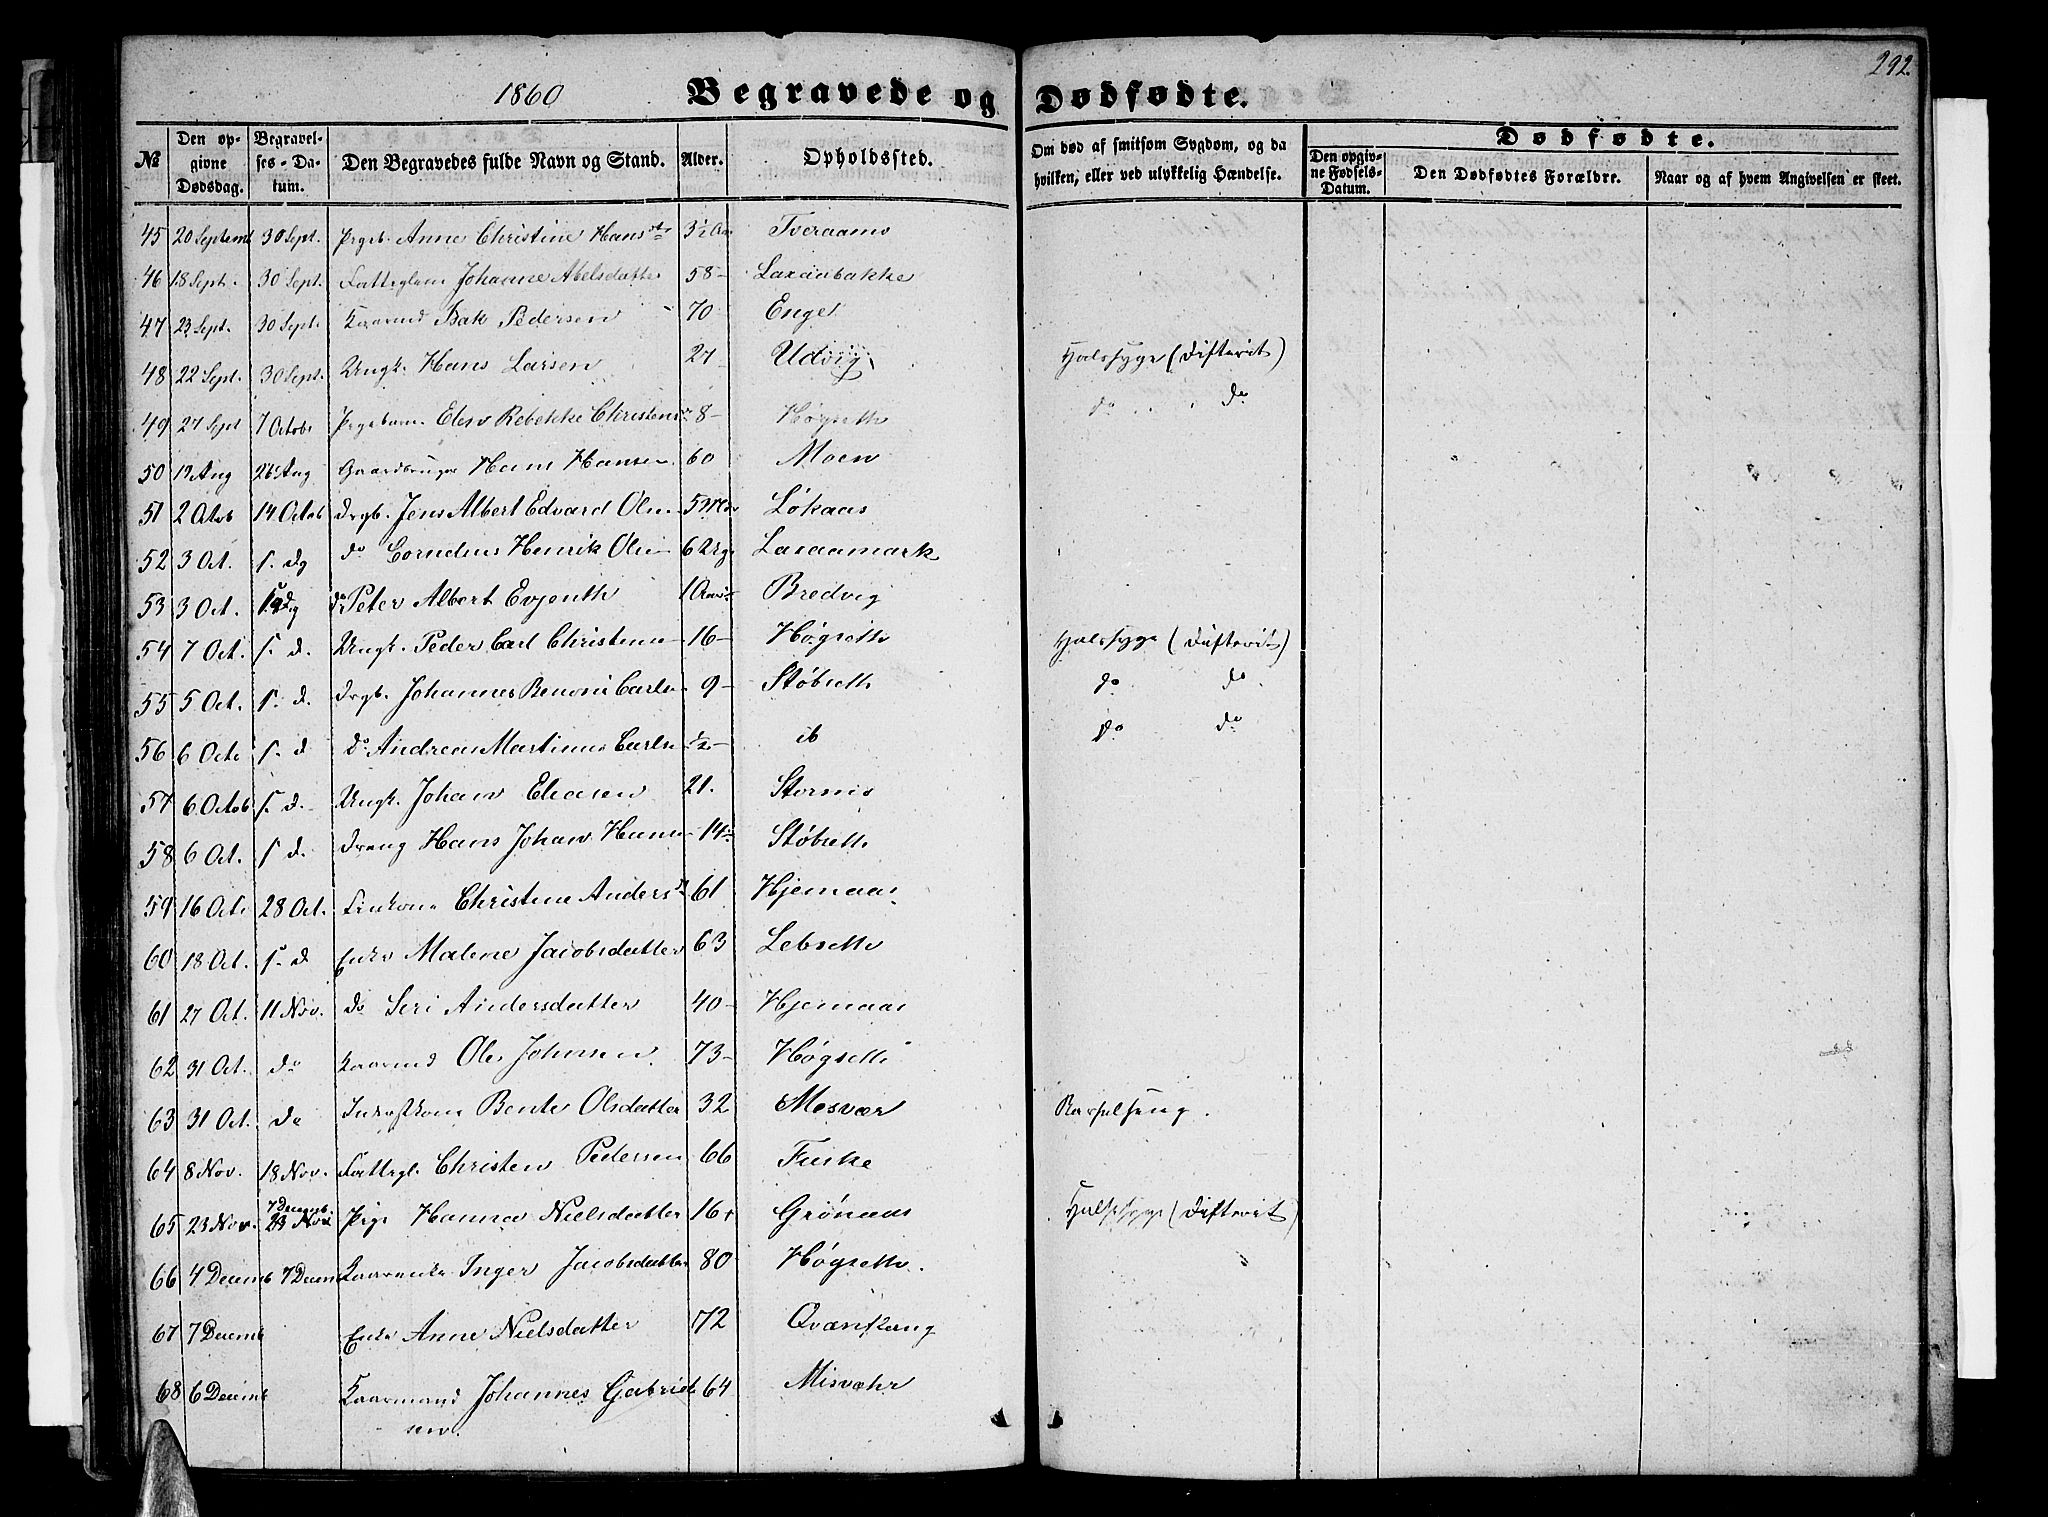 292
1860 Begravede og Dødfødte.
№ Den opgivne Dødsdag. Begravelses-Datum. Den Begravedes fulde Navn og Stand. Alder. Opholdssted. Om død af smitsom Sygdom, og da hvilken, eller ved ulykkelig Hændelse. Dødfødte. Den opgivne Fødsels-Datum. Den Dødfødtes Forældre. Naar og af hvem Angivelsen er skeet.
45 20 Septemb 30 Sept. Pigeb. Anne Christine Hansdtr 3½ Aar Tveraamo
46 18 Sept. 30 Sept. Fattiglem Johanne Abelsdatter 58 - Laxaabakke
47 23 Sept. 30 Sept. Kaarmd Isak Pedersen 70 Enget
48 22 Sept. 30 Sept. Ungk. Hans Larsen 27 Udvig Halssyge (Difterit)
49 27 Sept 7 Octobr Pigebarn Elen Rebekke Christens 8 - Høgseth do do
50 19 Aug 26 Aug Gaardbruger Hans Hansen 60 Moen
51 2 Octob 14 Octob Drgb. Jens Albert Edvard Olsen 5 Løkaas
52 3 Oct. s. dg do Cornelius Henrik Olsen 6 Ugr Laxaamark
53 3 Oct. s. Dg do Peter Albert Evjenth 1 Bredvig
54 7 Oct. s. d. Ungk. Peder Carl Christensen 16 - Høgseth Halssyge (Difterit)
55 5 Oct. s. d. Drgb. Johannes Benoni Carls 9 - Støbseth do do
56 6 Octr s. d do Andreas Martinus Carls ½ - ib do do
57 6 Octob s. d. Ungk. Johan Eliasen 21. Stornis
58 6 Oct. s d. Dreng Hans Johan Hansen 14 Støbseth
59 16 Octr 28 Oct. Christine Andersd 61 Hjemaas
60 18 Oct. s. d Enke Malene Jacobsdatter 63 Lebseth
61 27 Oct. 11 Nov. do Seri Andersdatter 40 - Hjemaas
62 31 Oct. do Kaarmd Ole Johnsen 73 - Høgseth
63 31 Oct. do Inderstkone Bente Olsdatter 32 Mosvær Barselseng.
64 8 Nov. 18 Nov. Fattigl. Christen Pedersen 66 Fuske
65 23 Nov. 7 Decemb. 23 Nov Pige Hanna Nielsdatter 16 Grønaas Halssyge (Difterit)
66 4 Decemb 7 Decemb Kaarenke Inger Jacobsdatter 80 Høgseth.
67 7 Decemb Enke Anne Nielsdatter 72 Qvænflaug
68 6 Decemb Kaarmand Johannes Gabriel 64 Misvæhr
sen.